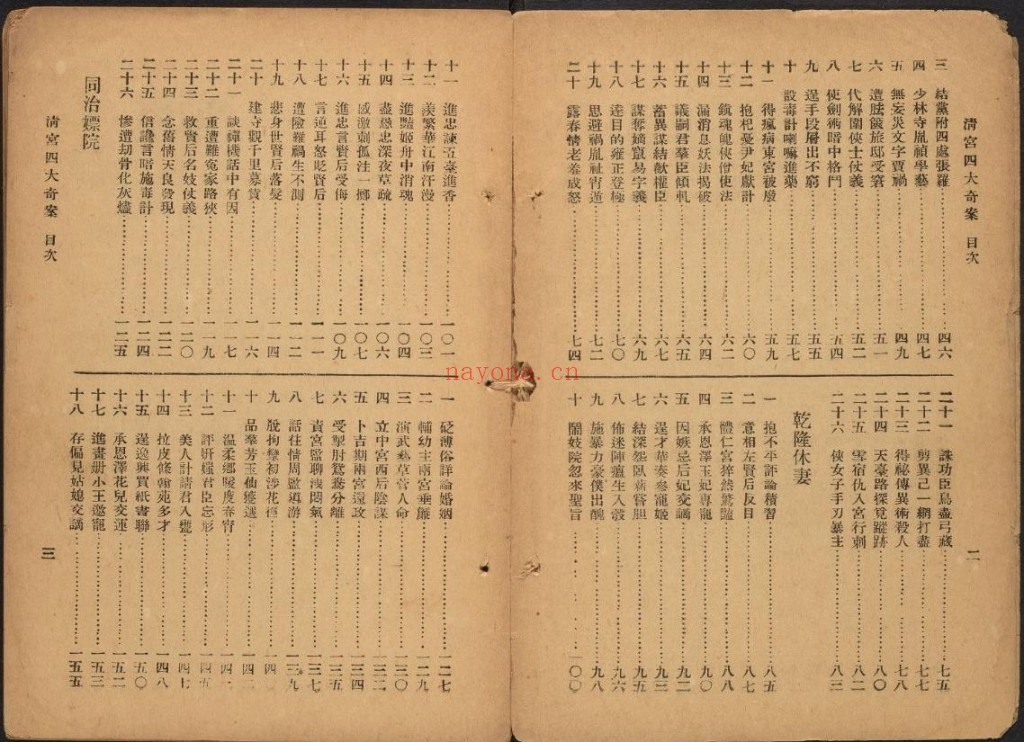 清宮四大奇案 目次
二
三 結黨附四處張羅 四六
四 少林寺胤禎學藝 四七
五 無妄災文字賈禍 四九
六 遭尷尬旅邸受窘 五一
七 代解圍俠士仗義 五二
八 使劍術暗中格鬥 五四
九 逞手段層出不窮 五五
十 設毒計喇嘛進藥 五七
十一 得瘋病東宮被廢 五九
十二 抱杞憂尹妃獻計 六〇
十三 鎮魂魄俠僧使法 六二
十四 漏消息妖法揭破 六四
十五 議嗣君羣臣傾軋 六五
十六 蓄異謀結歡權臣 六六
十七 謀奪嫡竄易字義 六九
十八 達目的雍正登極 七〇
十九 思避禍胤祉宵遁 七二
二十 露春情老養成怒 七四
二十一 誅功臣鳥盡弓藏 七五
二十二 剪異己一網打盡 七七
二十三 得秘傳異術殺人 七八
二十四 天臺路探覓蹤跡 八〇
二十五 雪宿仇入宮行刺 八二
二十六 俠女子手刃暴主 八三
乾隆休妻
一 抱不平評論積習 八五
二 意相左賢后反目 八七
三 體仁宮猝然驚豔 八八
四 承恩澤玉妃專寵 九〇
五 因嫉忌后妃交謫 九二
六 逞才華奏惷寵姬 九三
七 結深怨臥薪嘗胆 九五
八 佈迷陣瘟生入彀 九六
九 施暴力豪僕出醜 九八
十 鬧妓院忽來聖旨 一〇〇
十一 進忠諫壺臺進香 一〇一
十二 羨繁華江南汗漫 一〇三
十三 進豔姬舟中消魂 一〇四
十四 盡愚忠深夜草疏 一〇六
十五 感激劇孤注一擲 一〇七
十六 進忠言賢后受侮 一〇九
十七 言逆耳怒貶賢后 一一一
十八 遭險難禍生不測 一一二
十九 悲身世賢后落髮 一一四
二十 建寺觀千里募貲 一一六
二十一 談禪機話中有因 一一七
二十二 重遭難冤家路狹 一一九
二十三 救賢后名妓仗義 一二〇
二十四 念舊情天良發現 一二二
二十五 信讒言暗施毒計 一二四
二十六 慘遭刧骨化灰燼 一二五
同治嫖院
一 砭薄俗詳論婚姻 一二七
二 輔幼主兩宮垂簾 一二九
三 演武藝草菅人命 一三〇
四 立中宮西后陰謀 一三二
五 卜吉期兩宮還政 一三四
六 受掣肘鴛鴦分離 一三五
七 責宮監聊洩悶氣 一三七
八 話往情周監導游 一三九
九 脫拘攣初涉花徑 一四
十 品羣芳玉仙蹉選 一四
十一 温柔鄉曖度春宵 一四
十二 評妍媸君臣忘形 一四五
十三 美人計請君入甕 一四七
十四 拉皮條翰苑多才 一四八
十五 逞逸興買紙書聯 一五〇
十六 承恩澤花兒交運 一五二
十七 進畫册小王邀寵 一五三
十八 存偏見姑媳交謫 一五五
清宮四大奇案 目次
三
nayona.cn